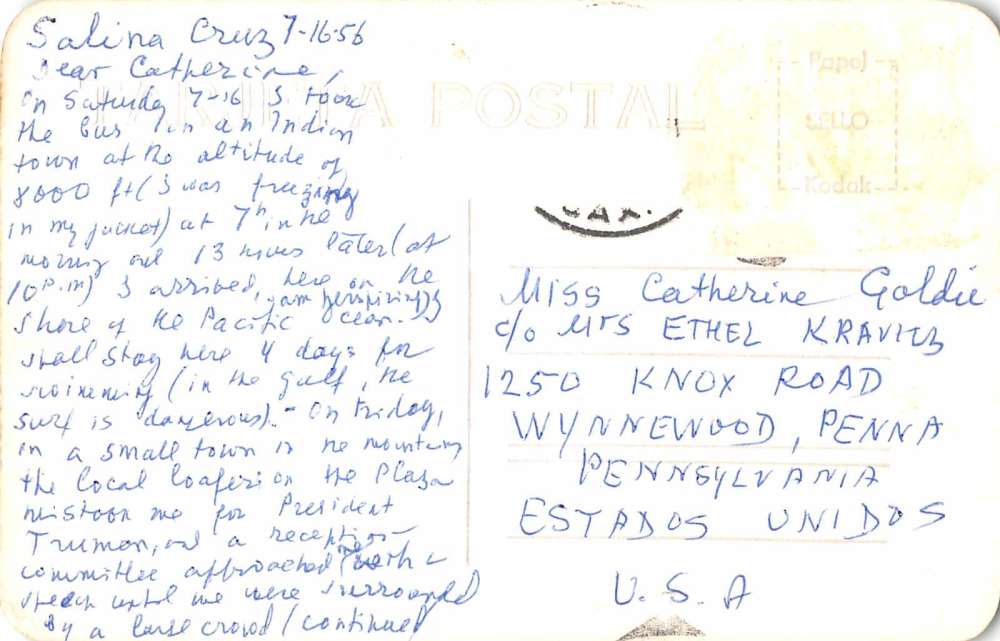 Salina Cruz 7-16-56
Dear Catherine,
On Saturday 7-16 I took
the bus in an Indian
town at the altitude of
8000 ft (I was freezing
in my jacket) at 7h in the
morning and 13 hours later (at
10 p.m) I arrived, here on the
shore of the Pacific Ocean. I
am perspiring
shall stay here 4 days for
swimming (in the gulf, the
surf is dangerous). - On Friday,
in a small town in the mountains
the local loafers on the Plaza
mistook me for President
Truman, and a reception
committee approached me with a
speech until we were surrounded
by a large crowd (continued
TARJETA POSTAL
Papel
SELLO
Kodak
MAR.
Miss Catherine Goldie
c/o Mrs ETHEL KRAVITZ
1250 KNOX ROAD
WYNNEWOOD, PENNA
PENNSYLVANIA
ESTADOS UNIDOS
U.S.A